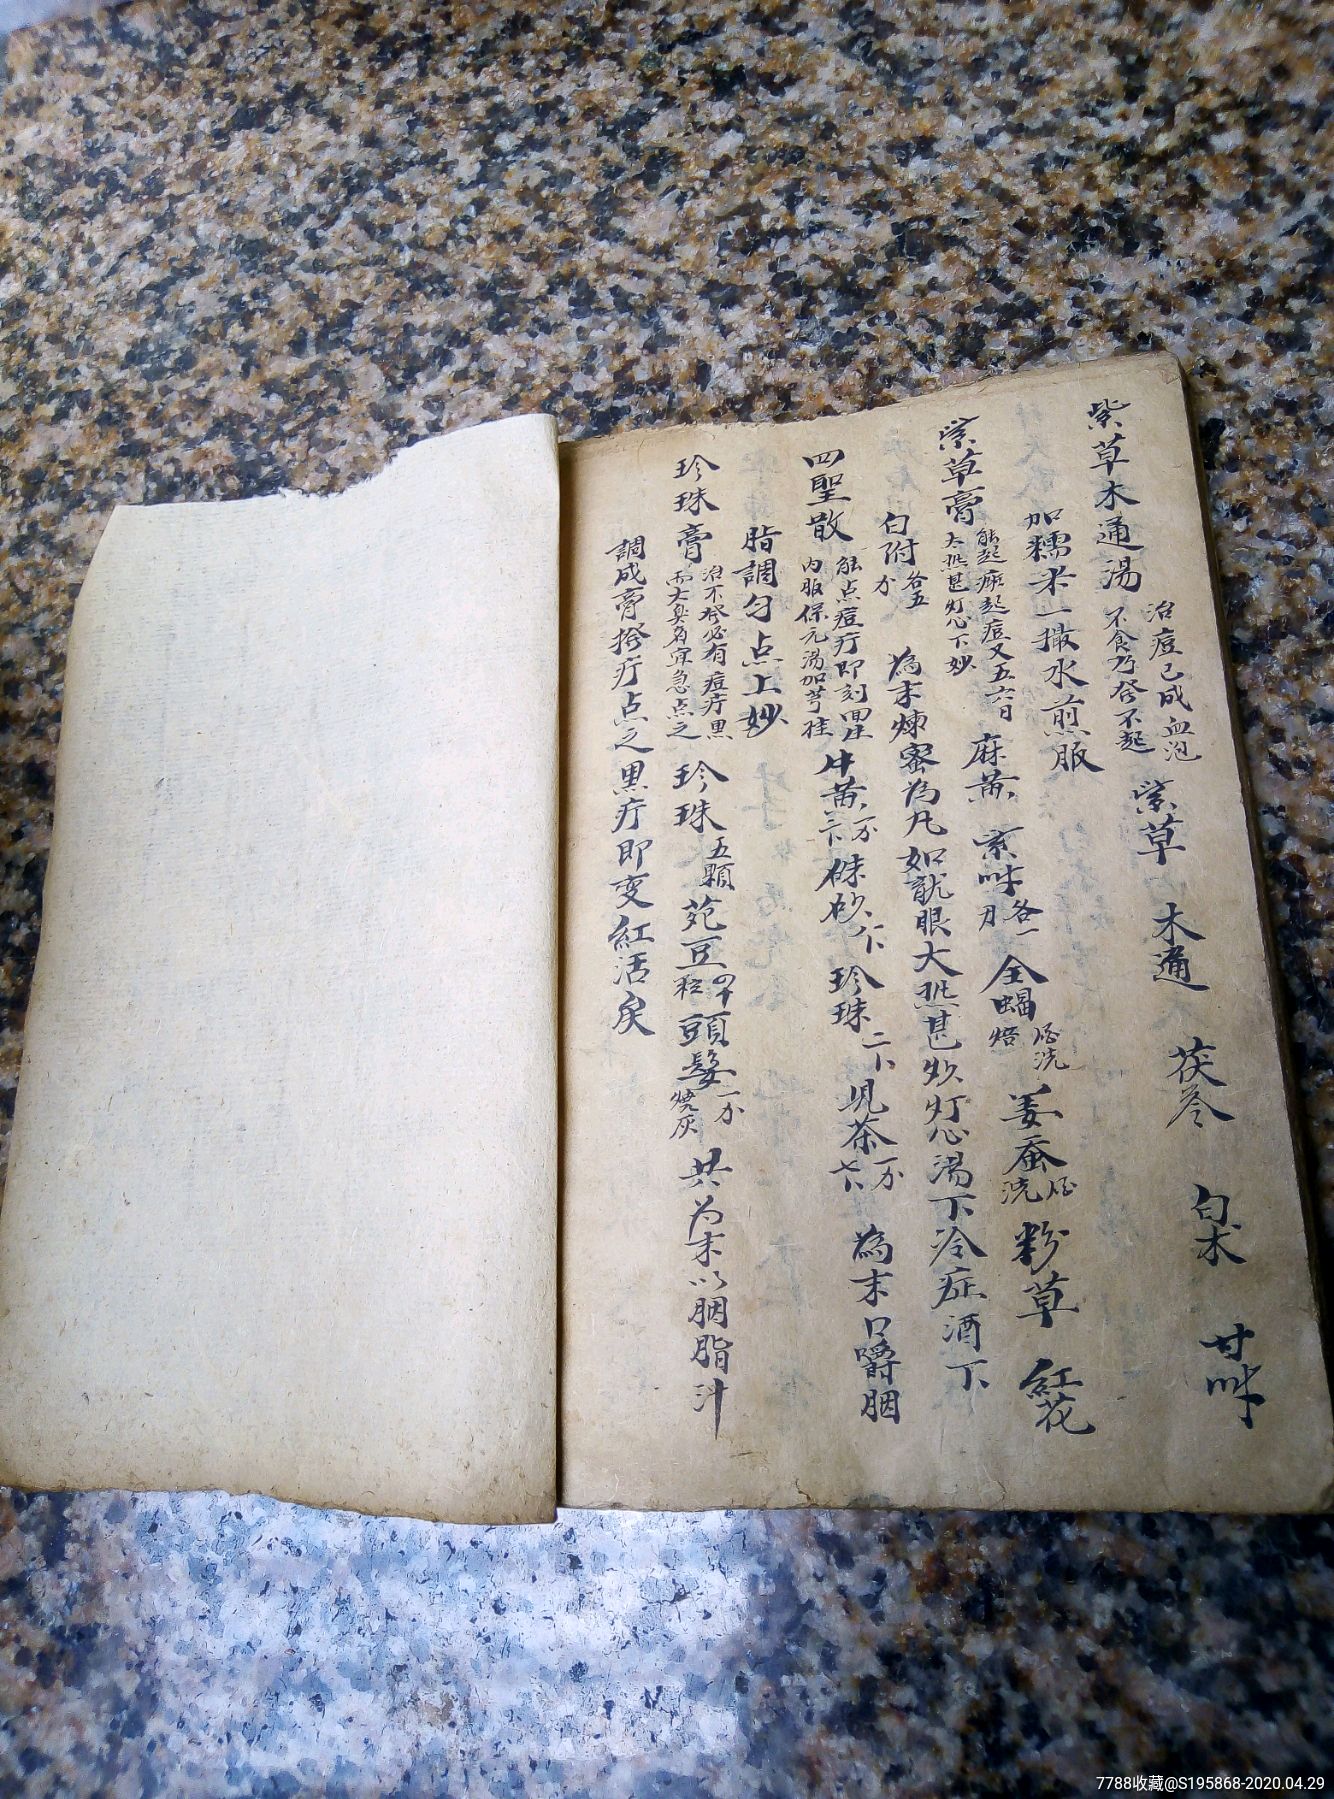 紫草木通湯 治痘已成血泡不食乃發不起 紫草 木通 茯苓 白术 甘草
加糯米一撮水煎服
紫草膏 能起瘢起痘又五六日大熱甚灯心下妙 麻黄 紫草各一 全蝎 洗焙 姜蚕 洗 粉草 紅花
白附各五分 為末煉蜜為丸如龍眼大熱甚以灯心湯下冷症酒下
四聖散 能点痘疔即刻 内服保元湯加芎桂 牛黄一分 硃砂 珍珠 児茶一分 為末口嚼胭
脂調勻点上妙
珍珠膏 治不發必有痘疔黒而大臭者宜急点之 珍珠五顆 苑豆 粒 頭髮一分燒灰 共為末以胭脂汁
調成膏撥疔点之黒疔即变紅活矣
7788收藏@S195868-2020.04.29